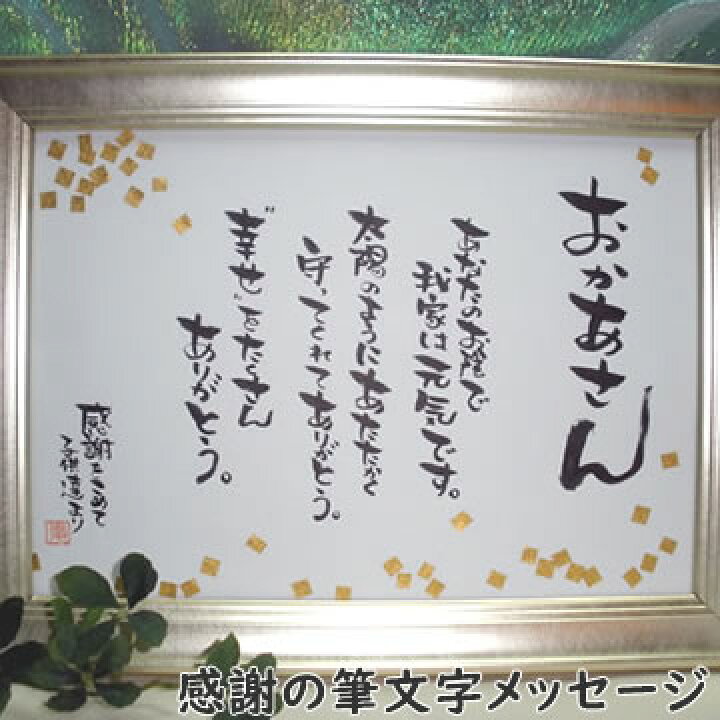 おかあさん
あなたのお陰で
我家は元気です。
太陽のようにあたたかく
守ってくれてありがとう。
"幸せ"をたくさん
ありがとう。
感謝をこめて
子供達より
感謝の筆文字メッセージ